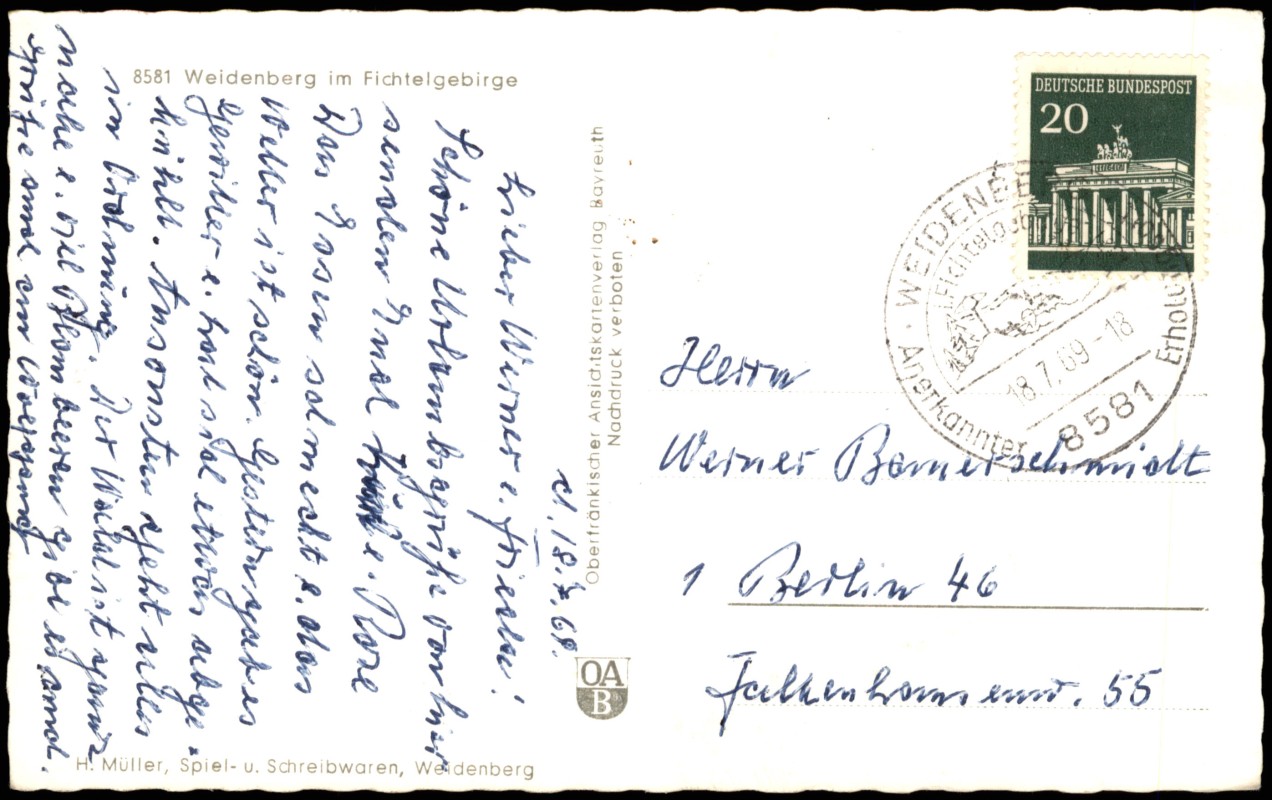 8581 Weidenberg im Fichtelgebirge
d. 18.7.69.
Lieber Werner u. Frieda!
Schöne Urlaubsgrüße von hier
senden Emal u. Rose
Das Essen schmeckt u. das
Wetter ist schön. Gestern gab es
Gewitter u. hat sich etwas abge-
kühlt. Ansonsten geht alles
in Ordnung. Der Wald ist ganz
nahe u. viel Blaubeeren gibt es auch.
Grüße auch an
H. Müller, Spiel- u. Schreibwaren, Weidenberg
Oberfränkischer Ansichtskartenverlag Bayreuth
Nachdruck verboten
OA
B
DEUTSCHE BUNDESPOST
20
WEIDENBE
Fichtelgeb
18.7.69-18
8581
Anerkannter Erholu
Herrn
Werner Bamerschmidt
1 Berlin 46
Falkenhausenw. 55